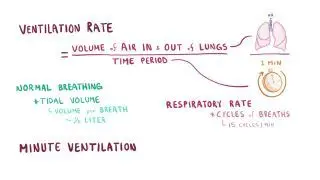 VENTILATION RATE
= VOLUME of AIR IN & OUT of LUNGS
TIME PERIOD
1 MIN
NORMAL BREATHING
* TIDAL VOLUME
↳ VOLUME per BREATH
~ ½ LITER
RESPIRATORY RATE
* CYCLES of BREATHS
↳ 15 CYCLES/MIN
MINUTE VENTILATION